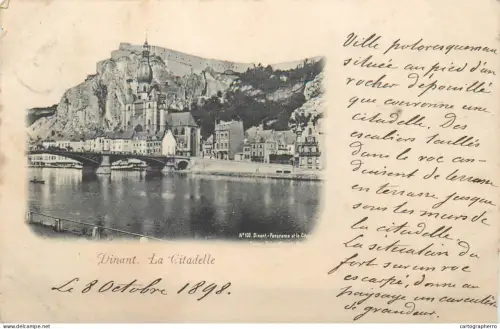 Ville pittoresquement
située au pied d'un
rocher dépouillé
que couronne une
citadelle. Des
escaliers taillés
dans le roc con-
duisent de terrasse
en terrasse jusque
sous les murs de
la citadelle.
La situation du
fort sur un roc
escarpé, donne au
paysage un caractère
de grandeur.
No 100. Dinant - Panorama et la Cit
Dinant. La Citadelle
Le 8 Octobre 1898.
www.delcampe.net
cartographero